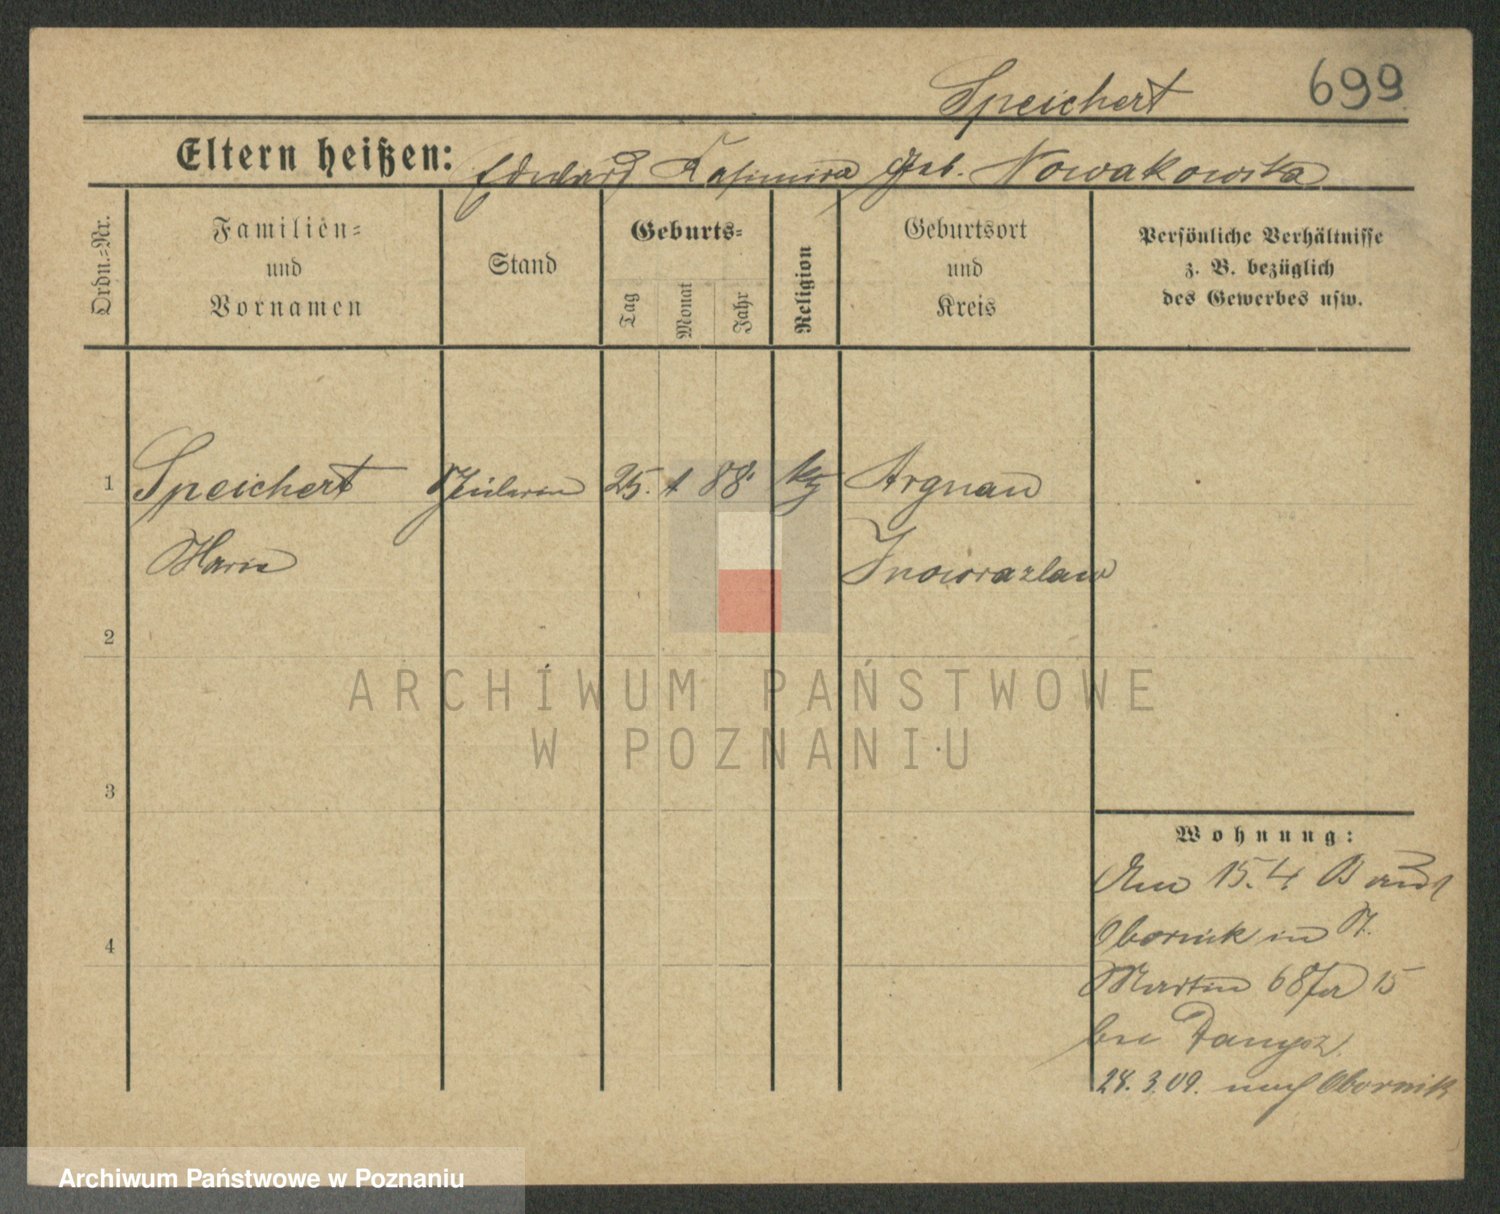 699
Speichert
Eltern heißen: Eduard Kasimira geb. Nowakowska
Ordn.-Nr.
Familien=
und
Vornamen
Stand
Geburts=
Tag
Monat
Jahr
Religion
Geburtsort
und
Kreis
Persönliche Verhältnisse
z. B. bezüglich
des Gewerbes usw.
1 Speichert 25. 1 88 kg Argnau
Maria Inowrazlaw
2
3
4
Wohnung:
15.4
Obornik in St.
Martin 68 15
bei
24. 3. 09. nach Obornik
ARCHIWUM PAŃSTWOWE
W POZNANIU
Archiwum Państwowe w Poznaniu